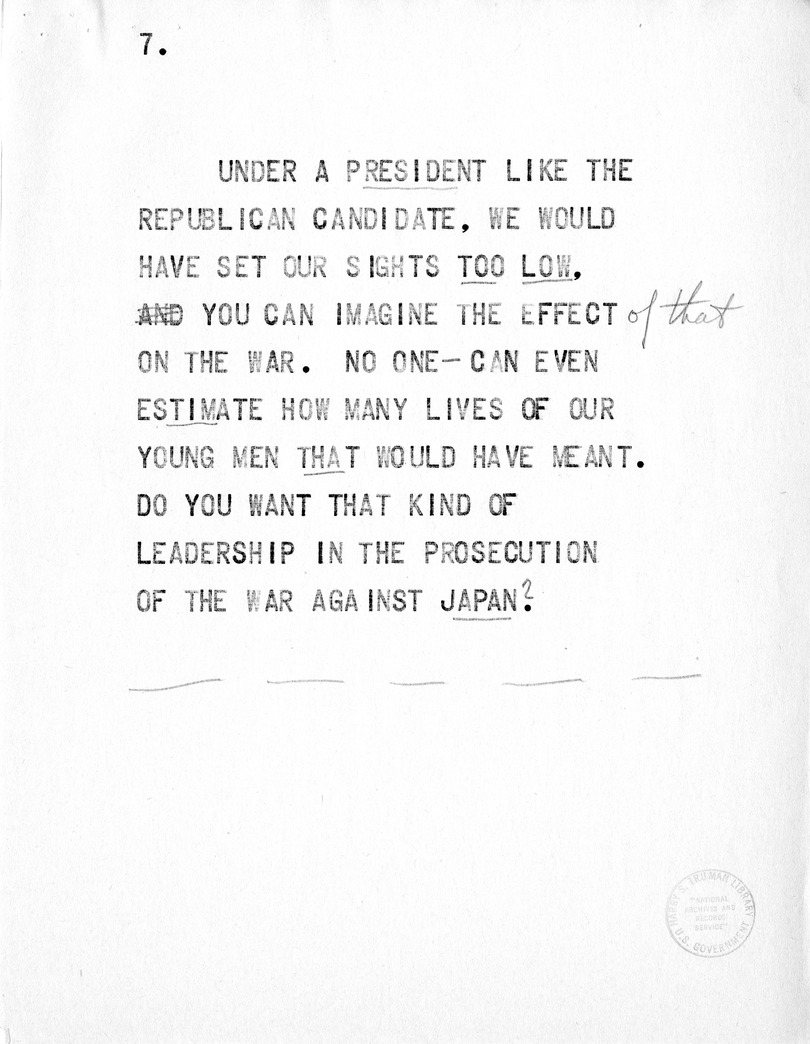 7.
UNDER A PRESIDENT LIKE THE
REPUBLICAN CANDIDATE, WE WOULD
HAVE SET OUR SIGHTS TOO LOW,
AND YOU CAN IMAGINE THE EFFECT of that
ON THE WAR. NO ONE—CAN EVEN
ESTIMATE HOW MANY LIVES OF OUR
YOUNG MEN THAT WOULD HAVE MEANT.
DO YOU WANT THAT KIND OF
LEADERSHIP IN THE PROSECUTION
OF THE WAR AGAINST JAPAN?
HARRY S. TRUMAN LIBRARY
"NATIONAL
ARCHIVES AND
RECORDS
SERVICE"
U.S. GOVERNMENT